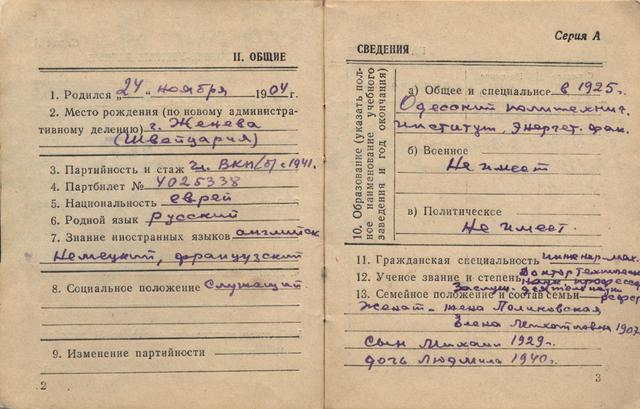 II. ОБЩИЕ
1. Родился „24" ноября 1904 г.
2. Место рождения (по новому администра-
тивному делению) г. Женева
(Швейцария)
3. Партийность и стаж чл. ВКП(б) с 1941.
4. Партбилет № 4025338
5. Национальность еврей
6. Родной язык русский
7. Знание иностранных языков английск
немецкий, французский
8. Социальное положение Служащий
9. Изменение партийности
2
Серия А
СВЕДЕНИЯ
10. Образование (указать пол-
ное наименование учебного
заведения и год окончания)
а) Общее и специальное в 1925 г.
Одесский политехнич.
институт, энергет. фак.
б) Военное
Не имеет
в) Политическое
Не имеет.
11. Гражданская специальность инженер-мех.
12. Ученое звание и степень Доктор техническ
наук професс
Заслуж. деятель науки
13. Семейное положение и состав семьи РСФСР
Женат - жена Поликовская
Елена 1907
Сын Михаил 1929 г.
дочь Людмила 1940 г.
3